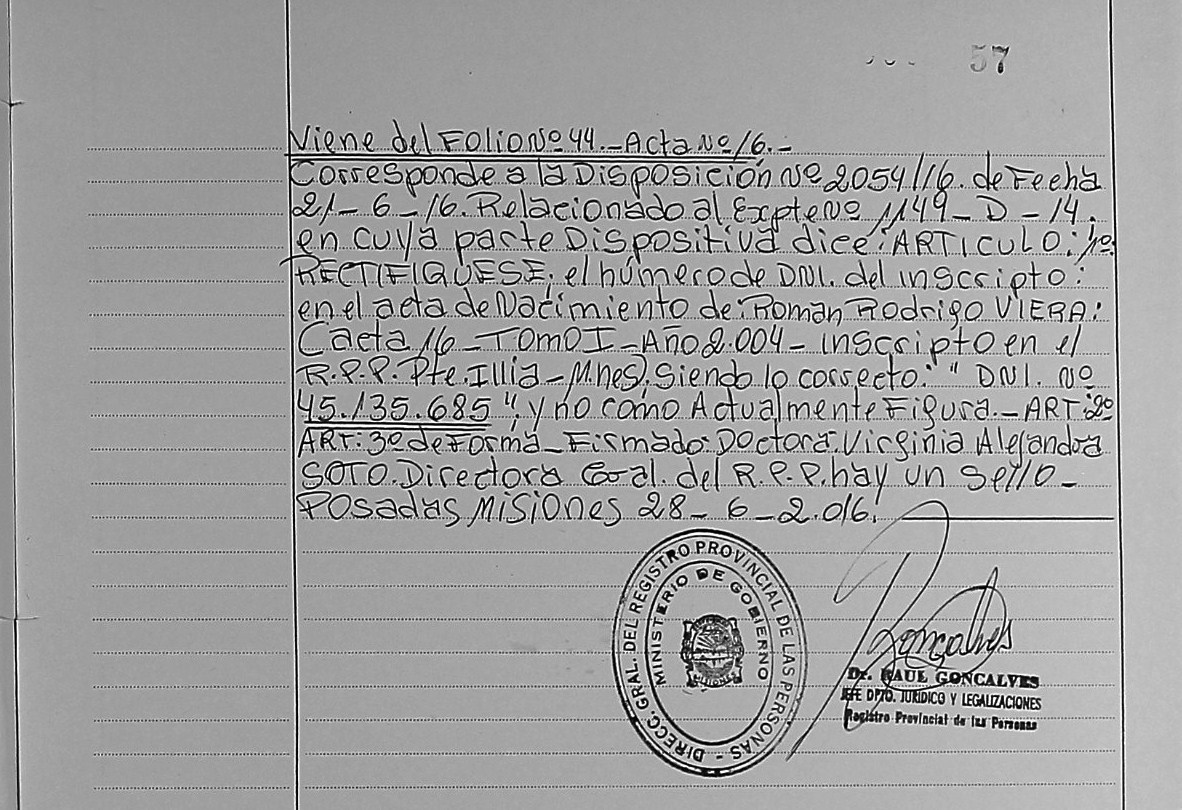 57
Viene del Folio Nº 44.-Acta Nº 16.-
Corresponde a la Disposición Nº 2054/16. de Fecha
21-6-16. Relacionado al Expte Nº 1149-D-14.
en cuya parte Dispositiva dice: ARTICULO: 1º:
RECTIFIQUESE, el número de DNI. del inscripto:
en el acta de Nacimiento de: Roman Rodrigo VIERA:
(acta 16-TOMO I-Año 2.004-inscripto en el
R.P.P. Pte. Illia-Mnes). Siendo lo correcto: " DNI. Nº
45.135.685 ", y no como Actualmente Figura.-ART: 2º
ART: 3º de Forma-Firmado: Doctora: Virginia Alejandra
SOTO. Directora Gral. del R.P.P. hay un Sello-
Posadas Misiones 28-6-2.016.
DIRECC. GRAL. DEL REGISTRO PROVINCIAL DE LAS PERSONAS -
MINISTERIO DE GOBIERNO
MISIONES
Goncalves
Dr. RAUL GONCALVES
JEFE DPTO. JURIDICO Y LEGALIZACIONES
Registro Provincial de las Personas